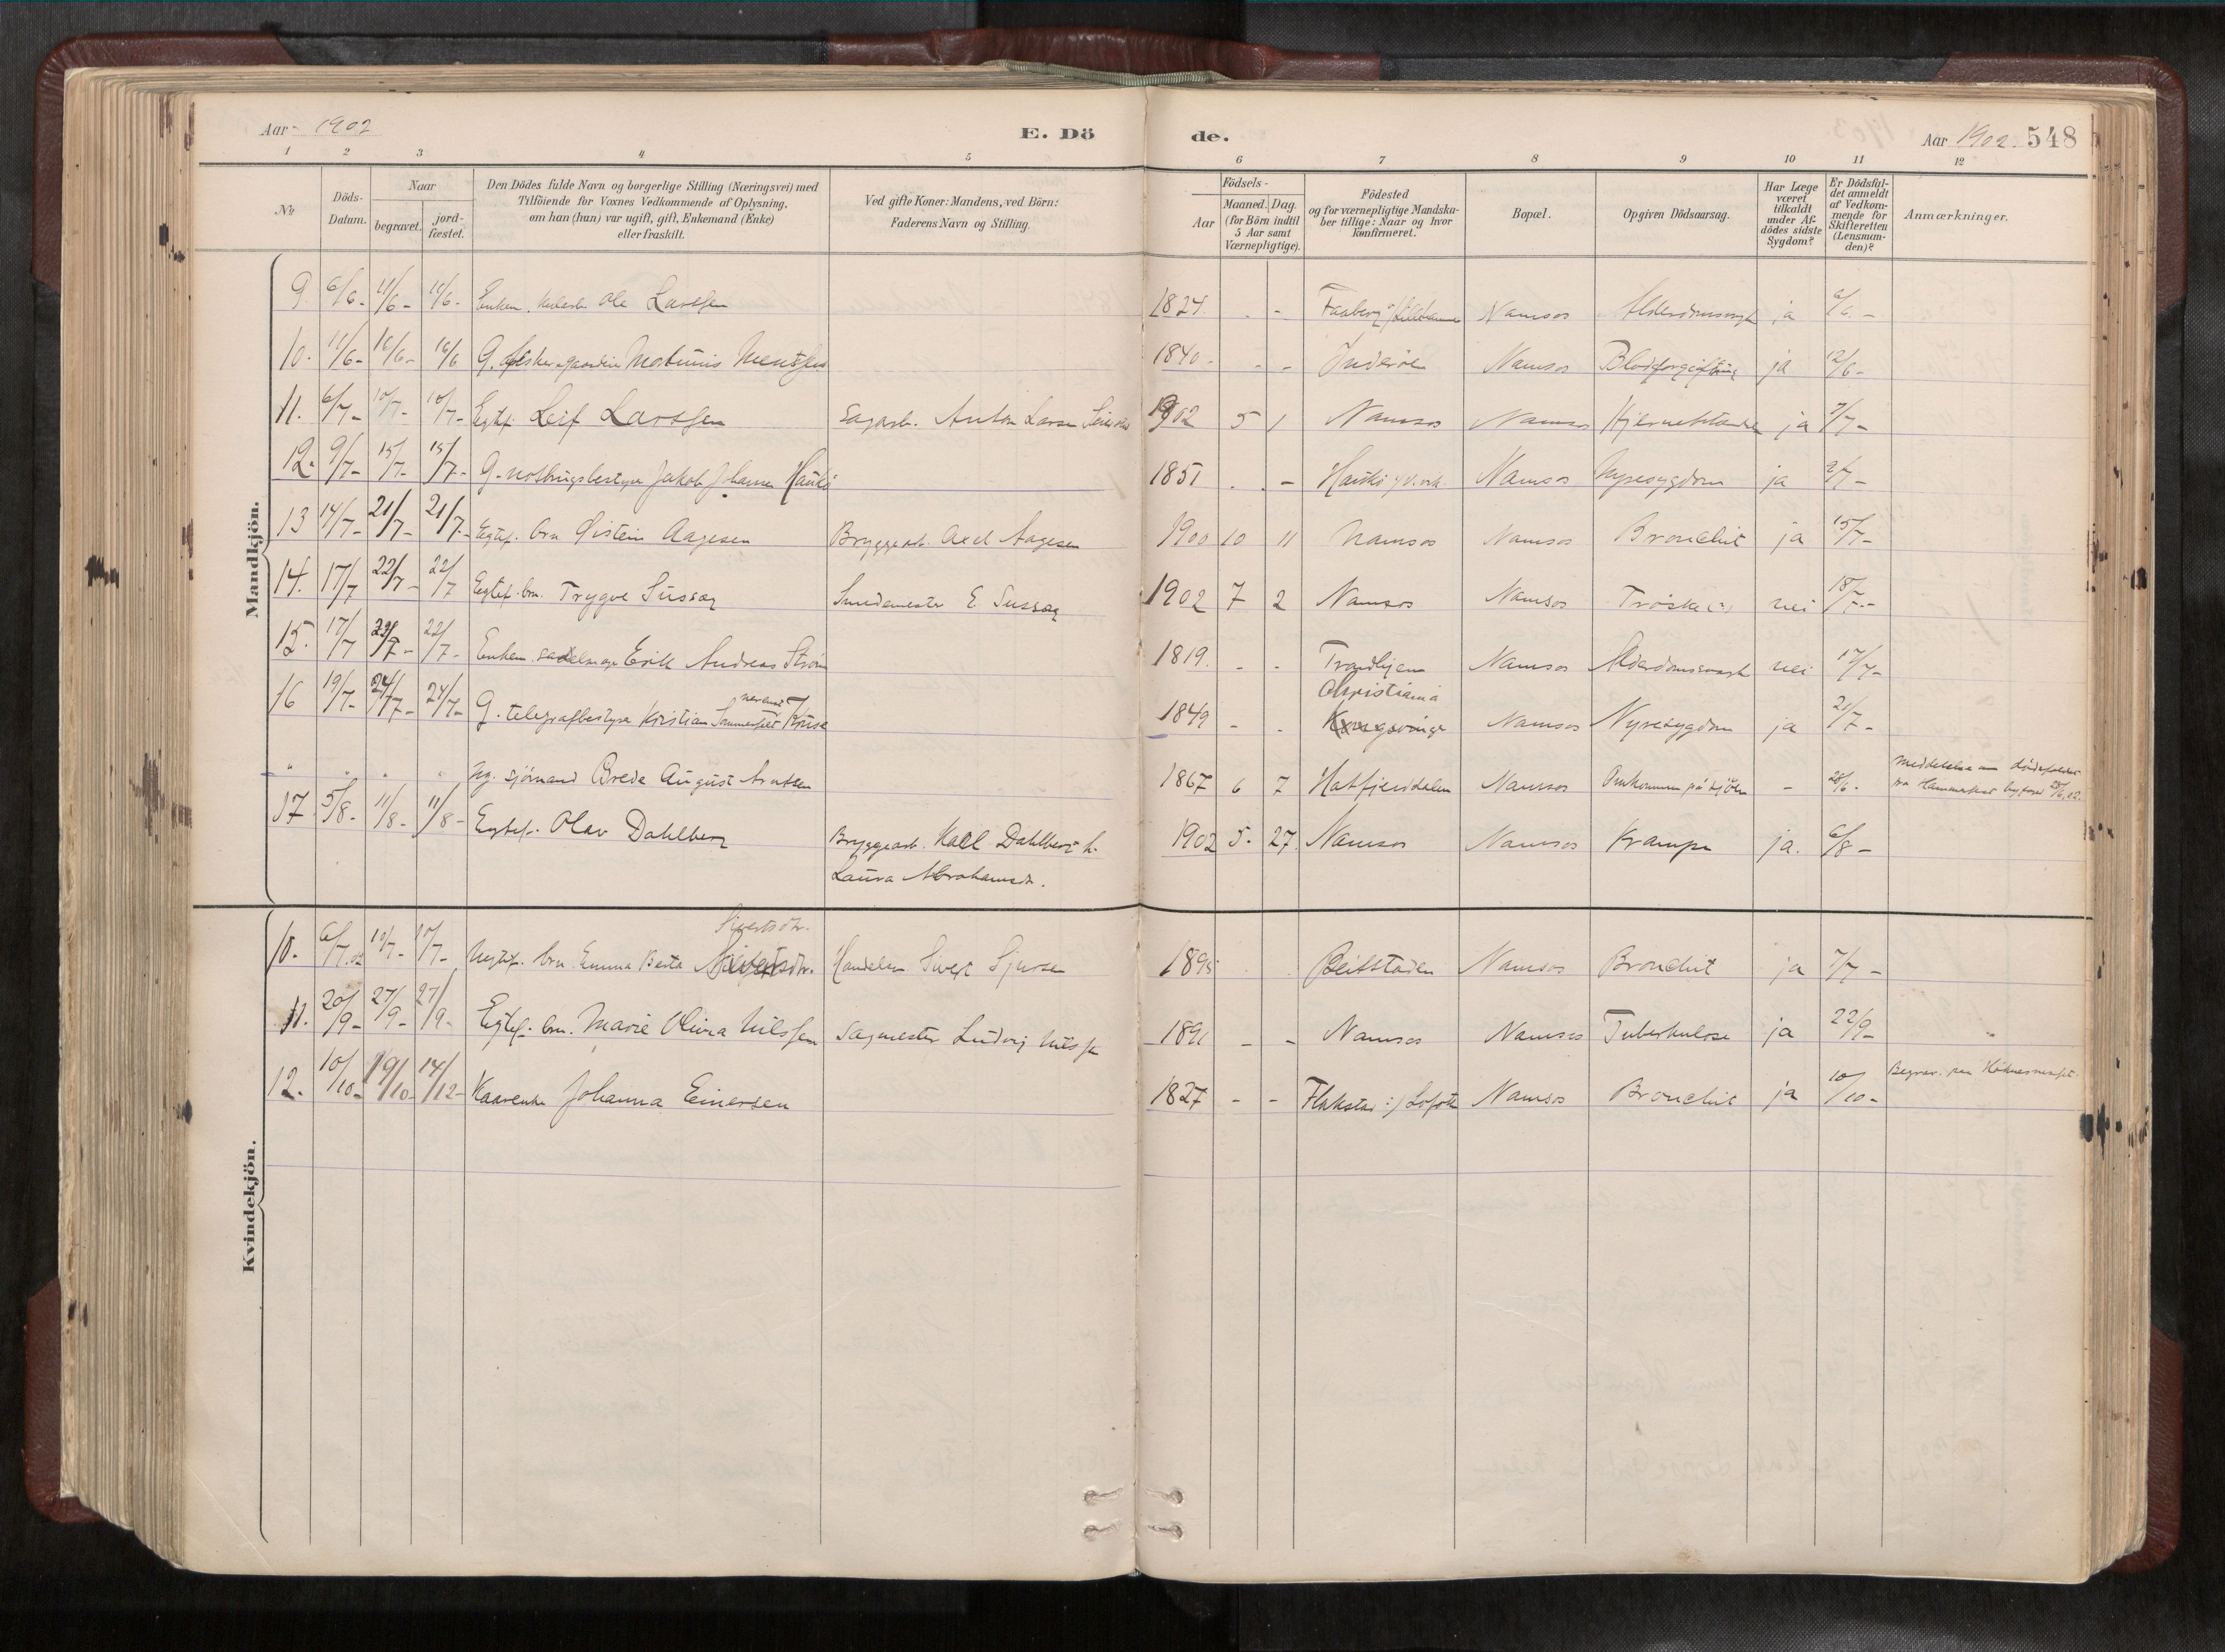 Aar 1902 E. Dö de. Aar 1902 548
1 2 3 4 5 6 7 8 9 10 11 12
No
Döds-Datum.
Naar
begravet.
jord-fæstet.
Den Dödes fulde Navn og borgerlige Stilling (Næringsvei) med
Tilföiende for Voxnes Vedkommende af Oplysning,
om han (hun) var ugift, gift, Enkemand (Enke)
eller fraskilt.
Ved gifte Koner: Mandens, ved Börn:
Faderens Navn og Stilling.
Födsels-
Aar
Maaned. Dag.
(for Börn indtil
5 Aar samt
Værnepligtige).
Födested
og for værnepligtige Mandska-
ber tillige: Naar og hvor
konfirmeret.
Bopæl.
Opgiven Dödsaarsag.
Har Læge
været
tilkaldt
under Af-
dödes sidste
Sygdom?
Er Dödsfal-
det anmeldt
af Vedkom-
mende for
Skifteretten
(Lensman-
den)?
Anmærkninger.
Mandkjön.
9 6/6- 11/6- 11/6- Enkem. Ole Larssen 1824. - - Faaberg Namsos Alderdomssvagh ja 6/6-
10. 11/6- 16/6- 16/6 G. Mortinus Mentsen 1840- - - Inderöen Namsos Blodforgiftning ja 12/6-
11. 6/7- 10/7- 10/7- Egtef. Leif Larssen Sagarb. Anton Larsen 1902 5 1 Namsos Namsos ja 7/7-
12. 9/7- 15/7- 15/7- G. Jakob Johannes Haukö 1851 - - Namsos Nyresygdom ja 9/7-
13 14/7- 21/7- 21/7- Egtef. brn Øistein Aagesen Bryggearb. Axel Aagesen 1900 10 11 Namsos Namsos Bronchit ja 15/7-
14. 17/7 22/7- 22/7 Egtef. brn. Trygve Sussæg Smedemester E. Sussæg 1902 7 2 Namsos Namsos Tröske (?) nei 18/7-
15. 17/7 22/7- 22/7- Enkem. sadelmager Erik Andreas Ström 1819. - - Trondhjem Namsos Alderdomssvagh nei 17/7-
Christiania
16 19/7- 24/7- 24/7- G. telegrafbestyrer Kristian Sommerfelt Kruse 1849 - - Kongsvinger Namsos Nyresygdom ja 21/7-
" " " " Ug. sjömand Brede August Arntsen 1867 6 7 Hatfjelddalen Namsos Omkommen på sjöen - 28/6- Meddelelse om dödsfaldet
fra Hammerfest byfoged
17 5/8- 11/8- 11/8- Egtef. Olav Dahlberg Bryggearb. Karl Dahlberg h. 1902 5. 27. Namsos Namsos Krampe ja. 6/8-
Laura Abrahamsdr.
Kvindekjön.
Sivertsdtr.
10. 6/7.02 10/7- 10/7- brn Emma Berta Sivert Sjursen 1895 Beitstaden Namsos Bronchit ja 7/7-
11. 20/9- 27/9- 27/9- Egtef. brn. Marie Olivia Nilssen Sagmester Ludvig Nilssen 1891 - - Namsos Namsos Tuberkulose ja 22/9-
12. 10/10- 19/10- 14/12- Johanna Einersen 1827 - - Flakstad i/ Lofoten Namsos Bronchit ja 10/10- Begrav. paa